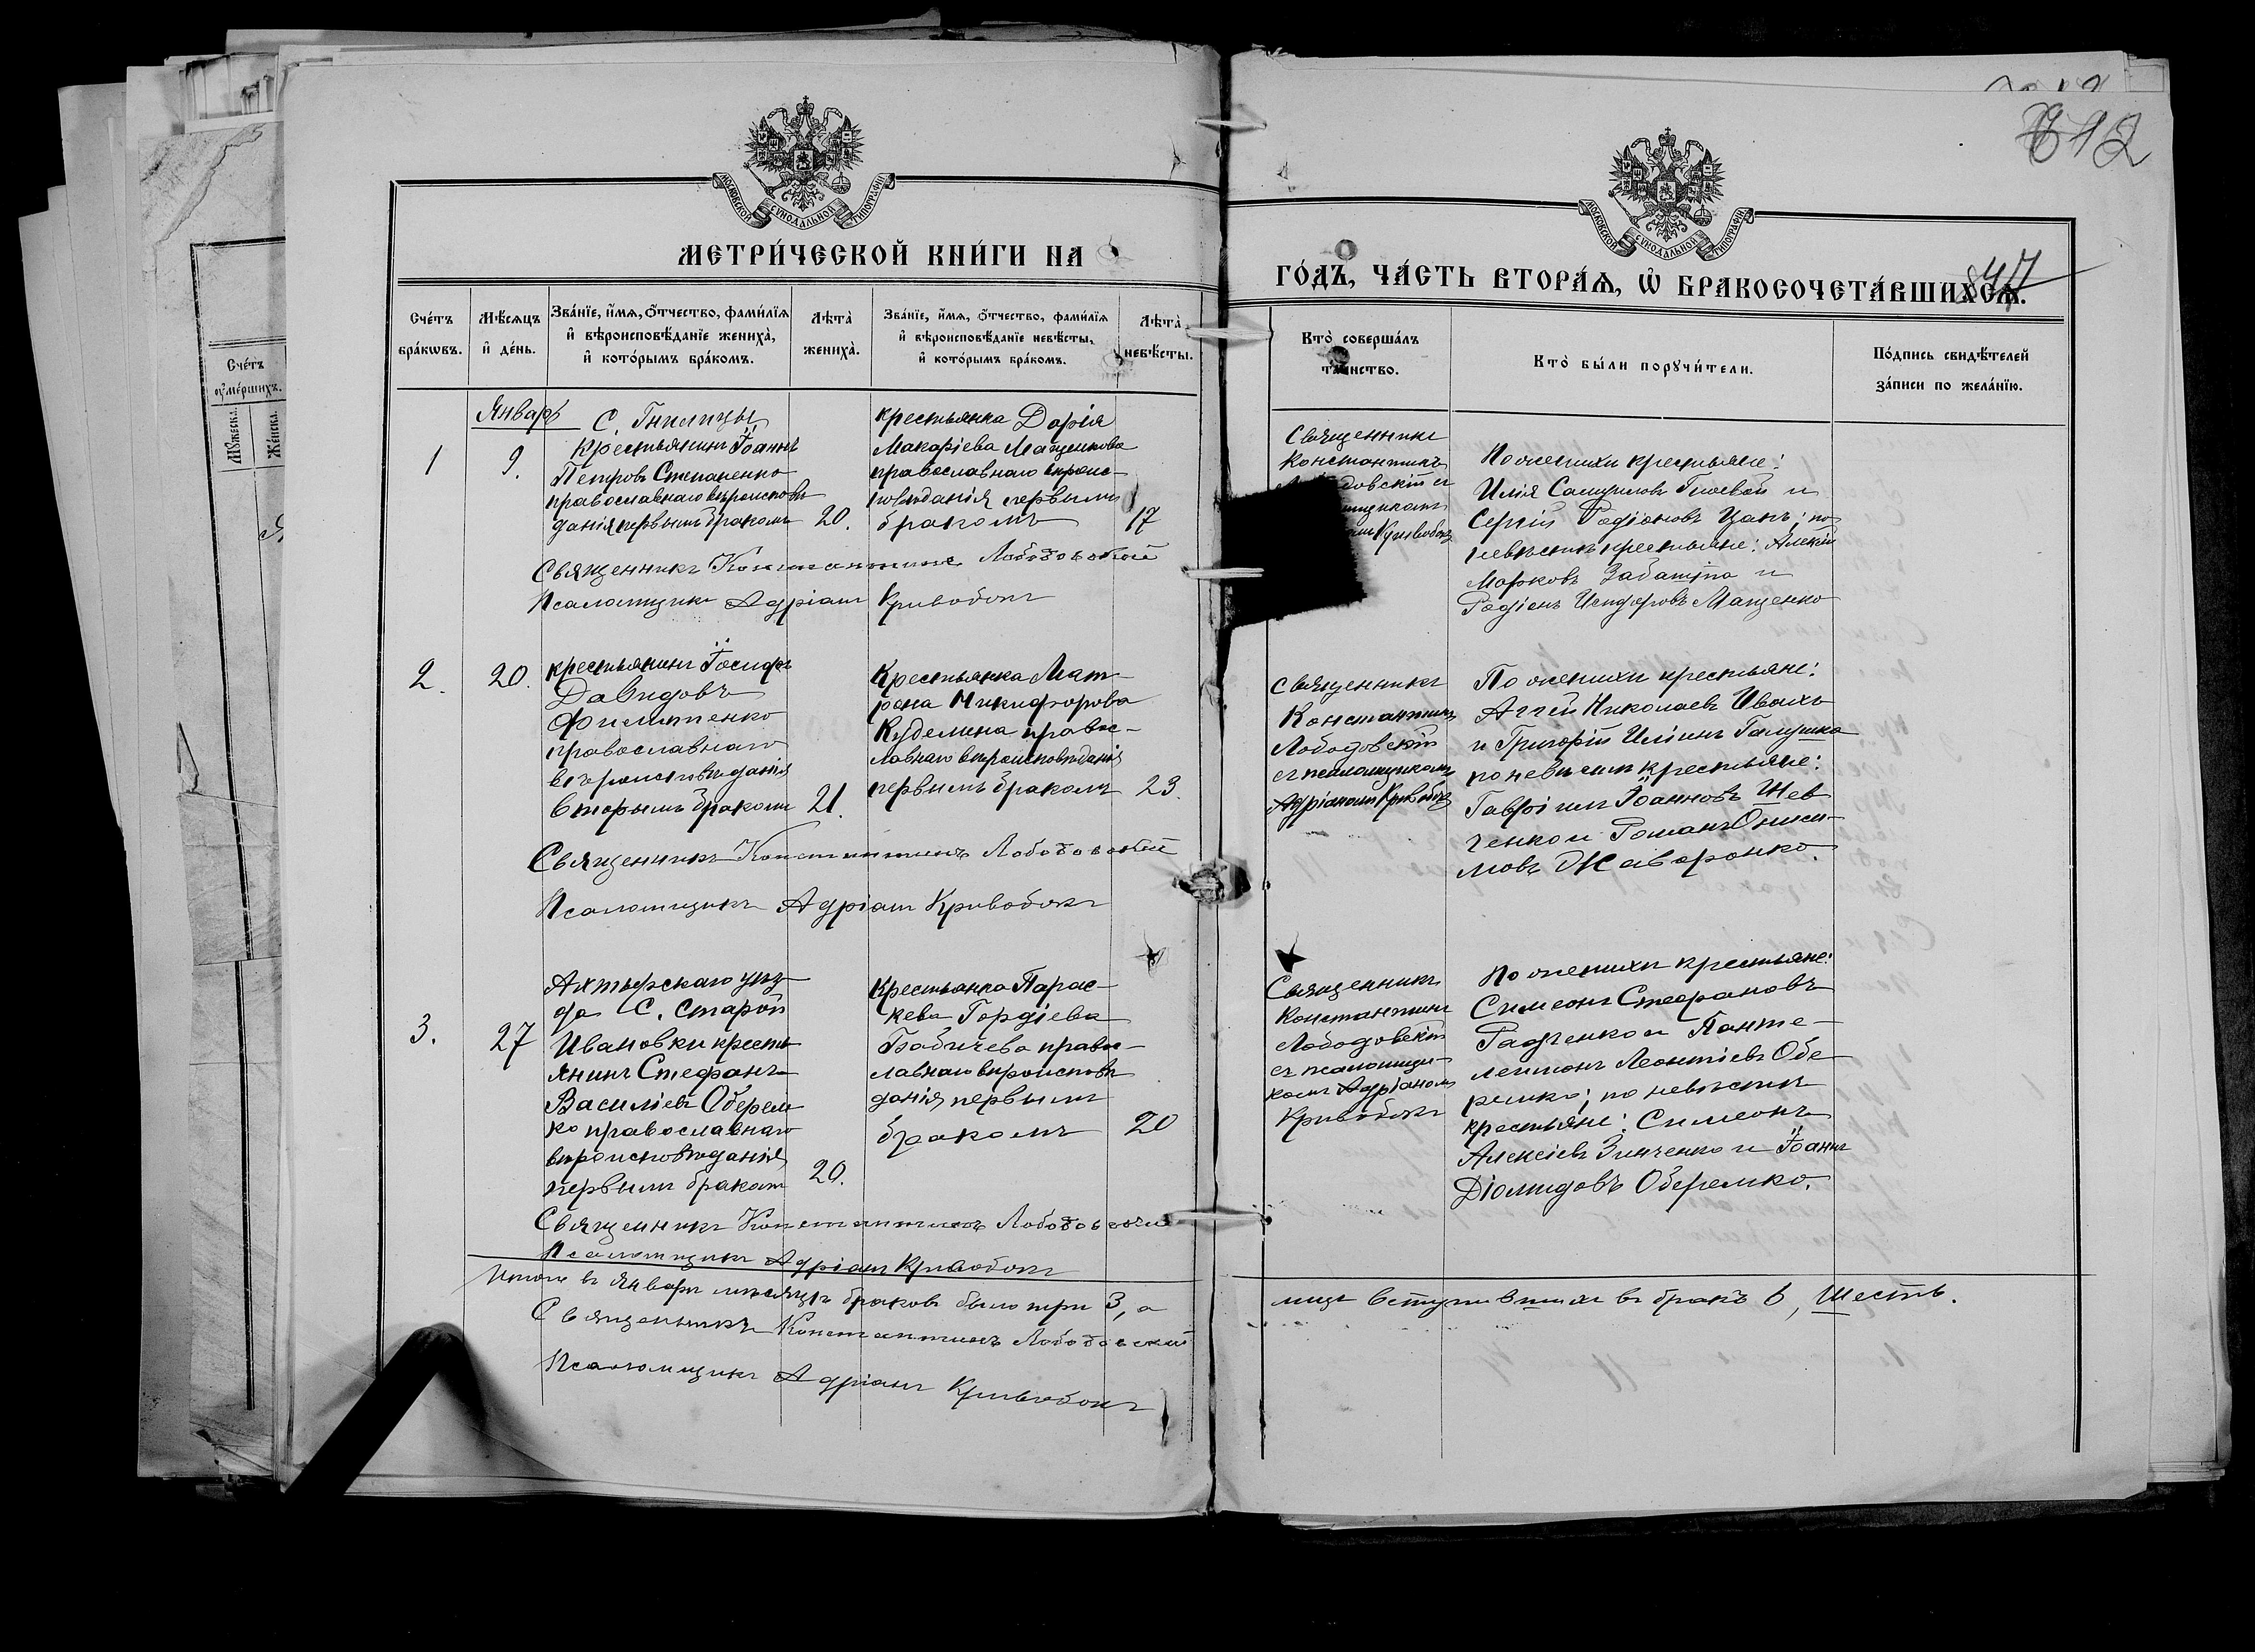 812
847
МЕТРИ́ЧЕСКОЙ КНИ́ГИ НА
ГО́ДЪ, ЧА́СТЬ ВТОРА́Я, Ѡ҆ БРАКОСОЧЕТА́ВШИХСЯ.
Сче́тъ бра́кѡвъ.
Мѣ́сяцъ и҆ де́нь.
Зва́нїе, и҆́мя, ѻ҆́тчество, фами́лїя и҆ вѣроисповѣ́данїе жениха̀, и҆ кото́рымъ бра́комъ.
Лѣта̀ жениха̀.
Зва́нїе, и҆́мя, ѻ҆́тчество, фами́лїя и҆ вѣроисповѣ́данїе невѣ́сты, и҆ кото́рымъ бра́комъ.
Лѣта̀ невѣ́сты.
Кто̀ соверша́лъ та́инство.
Кто̀ бы́ли порꙋчи́тели.
По́дпись свидѣ́телей за́писи по жела́нїю.
Январь
1
9.
С. Гнилицы
Крестьянинъ Іоаннъ
Петровъ Степаненко
православнаго вѣроисповѣ
данія первымъ бракомъ
20.
крестьянка Дарія
Макаріева Мащенкова
православнаго вѣроис-
повѣданія первымъ
бракомъ
17
Священникъ
Константинъ
довскій съ
Кривобокъ
По женихѣ крестьяне:
Илія Самуиловъ Гноевой и
Сергій Родіоновъ Цапъ; по
невѣстѣ крестьяне: Алексій
Марковъ Забашта и
Родіонъ Исидоровъ Мащенко
Священникъ Константинъ Лободовскій
Псаломщикъ Адріанъ Кривобокъ
2.
20.
крестьянинъ Іосифъ
Давидовъ
Филиппенко
православнаго
вѣроисповѣданія
вторымъ бракомъ
21.
Крестьянка Мат-
рона Никифорова
Куделина правос-
лавнаго вѣроисповѣданія
первымъ бракомъ
23.
Священникъ
Константинъ
Лободовскій
съ псаломщикомъ
Адріаномъ Кривобокъ
По женихѣ крестьяне:
Аггей Николаевъ Ивахъ
и Григорій Иліинъ Галушка
по невѣстѣ крестьяне:
Гавріилъ Іоанновъ Шев
ченко и Романъ Ониси-
мовъ Жаворонко.
Священникъ Константинъ Лободовскій
Псаломщикъ Адріанъ Кривобокъ
3.
27
Ахтырскаго уѣз-
да С. Старой
Ивановки кресть
янинъ Стефанъ
Василіевъ Оберем
ко православнаго
вѣроисповѣданія
первымъ бракомъ
20.
Крестьянка Парас-
кева Гордіева
Бабичева правос-
лавнаго вѣроисповѣ
данія первымъ
бракомъ
20
Священникъ
Константинъ
Лободовскій
съ псаломщи-
комъ Адріаномъ
Кривобокъ
По женихѣ крестьяне:
Симеонъ Стефановъ
Радченко и Панте-
леимонъ Леонтіевъ Обе
ремко; по невѣстѣ
крестьяне: Симеонъ
Алексіевъ Зинченко и Іоаннъ
Діомидовъ Оберемко.
Священникъ Константинъ Лободовскій
Псаломщикъ Адріанъ Кривобокъ
Итого въ Январѣ мѣсяцѣ браковъ было три 3, а
лицъ вступившихъ въ бракъ 6, Шесть.
Священникъ Константинъ Лободовскій
Псаломщикъ Адріанъ Кривобокъ
Сче́тъ оу҆ме́ршихъ.
Мꙋ́жеска.
Же́нска.